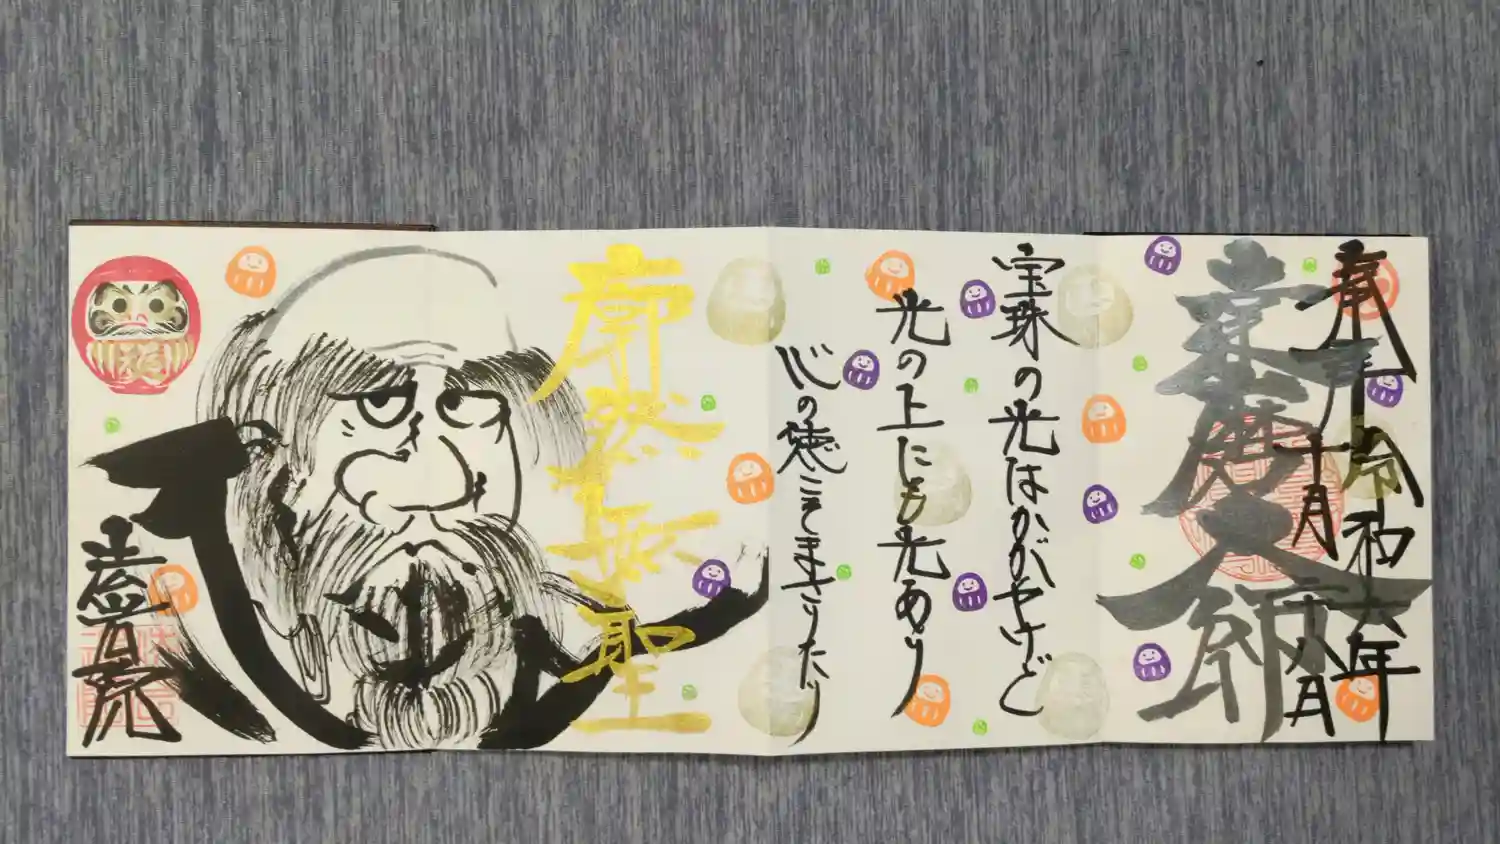 奉拝 令和六年
十月十八日
達磨大師
宝珠の光はかがやけど
光の上にも光あり
心の徳こそまさりたり
廓然無聖